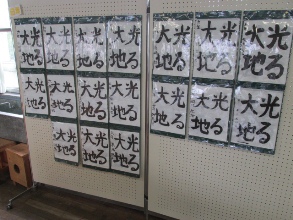 光る
大地
光る
大地
光る
大地
光る
大地
光る
大地
光る
大地
光る
大地
光る
大地
光る
大地
光る
大地
光る
大地
光る
大地
光る
大地
光る
大地
光る
大地
光る
大地
光る
大地